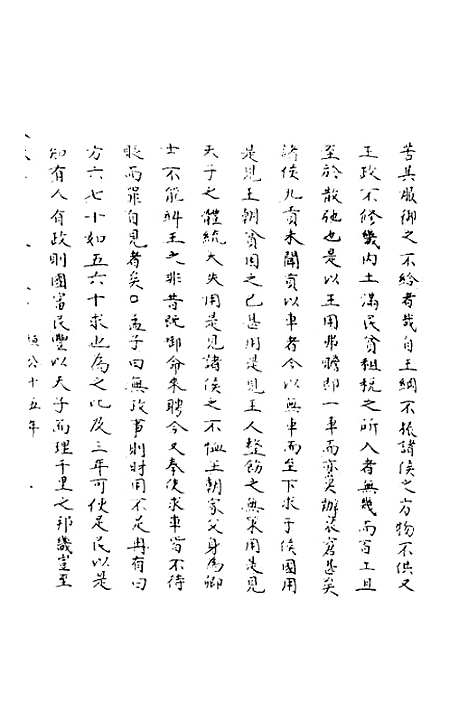 苦具服御之不給者哉自王綱不振諸侯之方物不供又
王政不修畿内土滿民貧租稅之所入者無幾而百工且
至於散他也是以王用弗贍即一車而亦莫辦衰窘甚矣
諸侯九貢未聞貢以車者今以無車而至下求于侯國用
是見王朝貧困之已甚用是見王人整飭之無策用是見
天子之體統大失用是見諸侯之不恤王朝家父身為卿
士不能斜王之非昔既御命來聘今又奉使求車皆不待
貶而罪自見者矣〇孟子曰無政事則財用不足冉有曰
方六七十如五六十求也為之比及三年可使足民以是
知有人有政則國富民豐以天子而理千里之邦畿豈至
桓公十五年